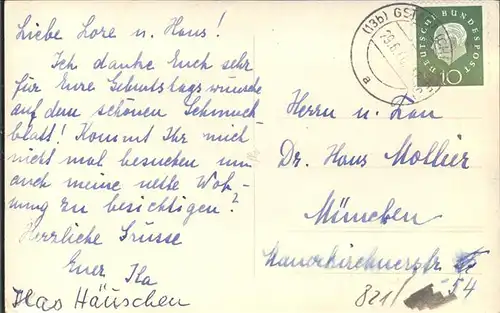 Liebe Lore u. Hans!
Ich danke Euch sehr
für Eure Geburtstagswünsche
auf dem schönen Schmuck
blatt! Kommt Ihr mich
nicht mal besuchen um
auch meine nette Woh-
nung zu besichtigen?
Herzliche Grüsse
Euer Ila
Ilas Häuschen
(13b) GST
29.6.
a
DEUTSCHE BUNDESPOST
10
Herrn u. Frau
Dr. Hans Mollier
München
Mauerkircherstr
54
821/